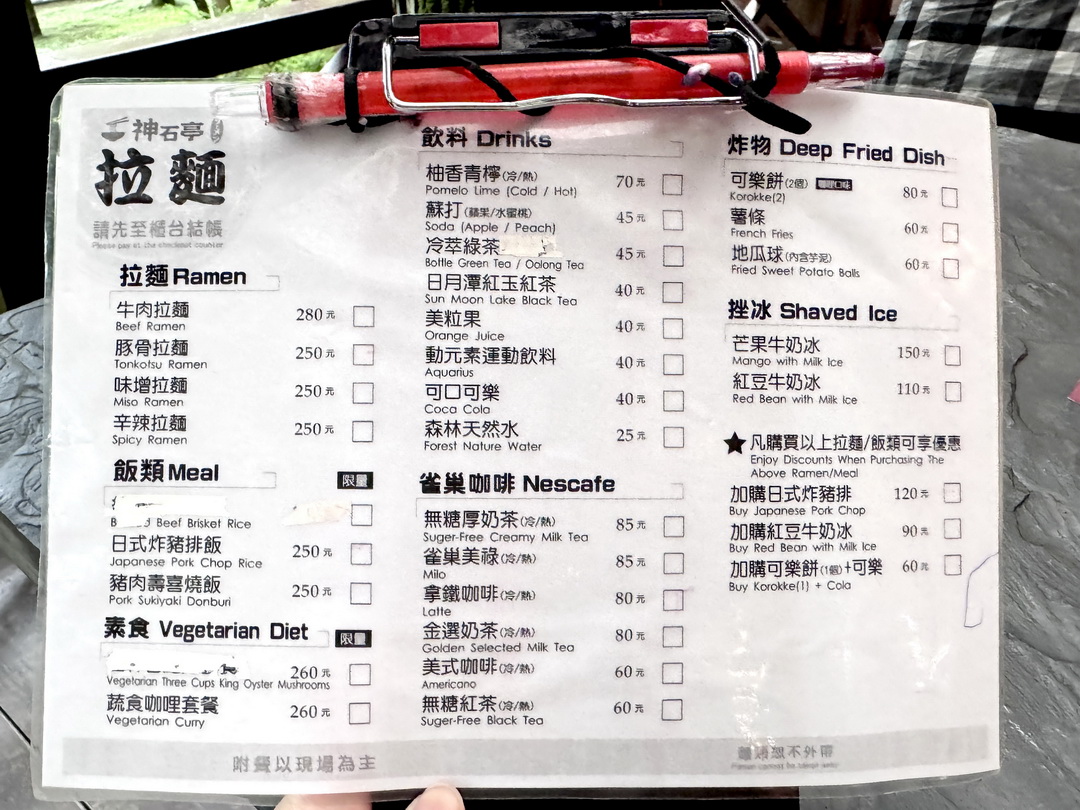 神石亭
拉麵
請先至櫃台結帳
Please pay at the checkout counter
拉麵 Ramen
牛肉拉麵 280元
Beef Ramen
豚骨拉麵 250元
Tonkotsu Ramen
味增拉麵 250元
Miso Ramen
辛辣拉麵 250元
Spicy Ramen
飯類 Meal 限量
Beef Brisket Rice
日式炸豬排飯 250元
Japanese Pork Chop Rice
豬肉壽喜燒飯 250元
Pork Sukiyaki Donburi
素食 Vegetarian Diet 限量
260元
Vegetarian Three Cups King Oyster Mushrooms
蔬食咖哩套餐 260元
Vegetarian Curry
飲料 Drinks
柚香青檸(冷/熱) 70元
Pomelo Lime (Cold / Hot)
蘇打(蘋果/水蜜桃) 45元
Soda (Apple / Peach)
冷萃綠茶 45元
Bottle Green Tea / Oolong Tea
日月潭紅玉紅茶 40元
Sun Moon Lake Black Tea
美粒果 40元
Orange Juice
動元素運動飲料 40元
Aquarius
可口可樂 40元
Coca Cola
森林天然水 25元
Forest Nature Water
雀巢咖啡 Nescafe
無糖厚奶茶(冷/熱) 85元
Suger-Free Creamy Milk Tea
雀巢美祿(冷/熱) 85元
Milo
拿鐵咖啡(冷/熱) 80元
Latte
金選奶茶(冷/熱) 80元
Golden Selected Milk Tea
美式咖啡(冷/熱) 60元
Americano
無糖紅茶(冷/熱) 60元
Suger-Free Black Tea
炸物 Deep Fried Dish
可樂餅(2個) 咖哩口味 80元
Korokke(2)
薯條 60元
French Fries
地瓜球(內含芋泥) 60元
Fried Sweet Potato Balls
挫冰 Shaved Ice
芒果牛奶冰 150元
Mango with Milk Ice
紅豆牛奶冰 110元
Red Bean with Milk Ice
★凡購買以上拉麵/飯類可享優惠
Enjoy Discounts When Purchasing The
Above Ramen/Meal
加購日式炸豬排 120元
Buy Japanese Pork Chop
加購紅豆牛奶冰 90元
Buy Red Bean with Milk Ice
加購可樂餅(1個)+可樂 60元
Buy Korokke(1) + Cola
附餐以現場為主
恕不外帶